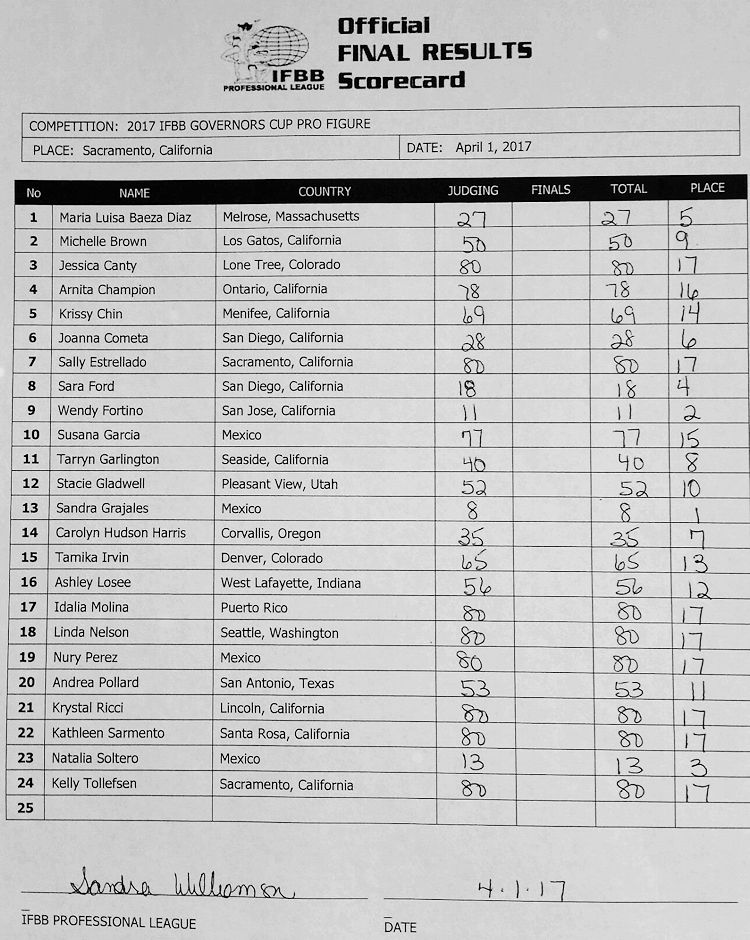 Official
FINAL RESULTS
Scorecard
IFBB
PROFESSIONAL LEAGUE
COMPETITION: 2017 IFBB GOVERNORS CUP PRO FIGURE
PLACE: Sacramento, California DATE: April 1, 2017
No NAME COUNTRY JUDGING FINALS TOTAL PLACE
1 Maria Luisa Baeza Diaz Melrose, Massachusetts 27 27 5
2 Michelle Brown Los Gatos, California 50 50 9
3 Jessica Canty Lone Tree, Colorado 80 80 17
4 Arnita Champion Ontario, California 78 78 16
5 Krissy Chin Menifee, California 69 69 14
6 Joanna Cometa San Diego, California 28 28 6
7 Sally Estrellado Sacramento, California 80 80 17
8 Sara Ford San Diego, California 18 18 4
9 Wendy Fortino San Jose, California 11 11 2
10 Susana Garcia Mexico 77 77 15
11 Tarryn Garlington Seaside, California 40 40 8
12 Stacie Gladwell Pleasant View, Utah 52 52 10
13 Sandra Grajales Mexico 8 8 1
14 Carolyn Hudson Harris Corvallis, Oregon 35 35 7
15 Tamika Irvin Denver, Colorado 65 65 13
16 Ashley Losee West Lafayette, Indiana 56 56 12
17 Idalia Molina Puerto Rico 80 80 17
18 Linda Nelson Seattle, Washington 80 80 17
19 Nury Perez Mexico 80 80 17
20 Andrea Pollard San Antonio, Texas 53 53 11
21 Krystal Ricci Lincoln, California 80 80 17
22 Kathleen Sarmento Santa Rosa, California 80 80 17
23 Natalia Soltero Mexico 13 13 3
24 Kelly Tollefsen Sacramento, California 80 80 17
25
Sandra Williamson 4.1.17
IFBB PROFESSIONAL LEAGUE DATE